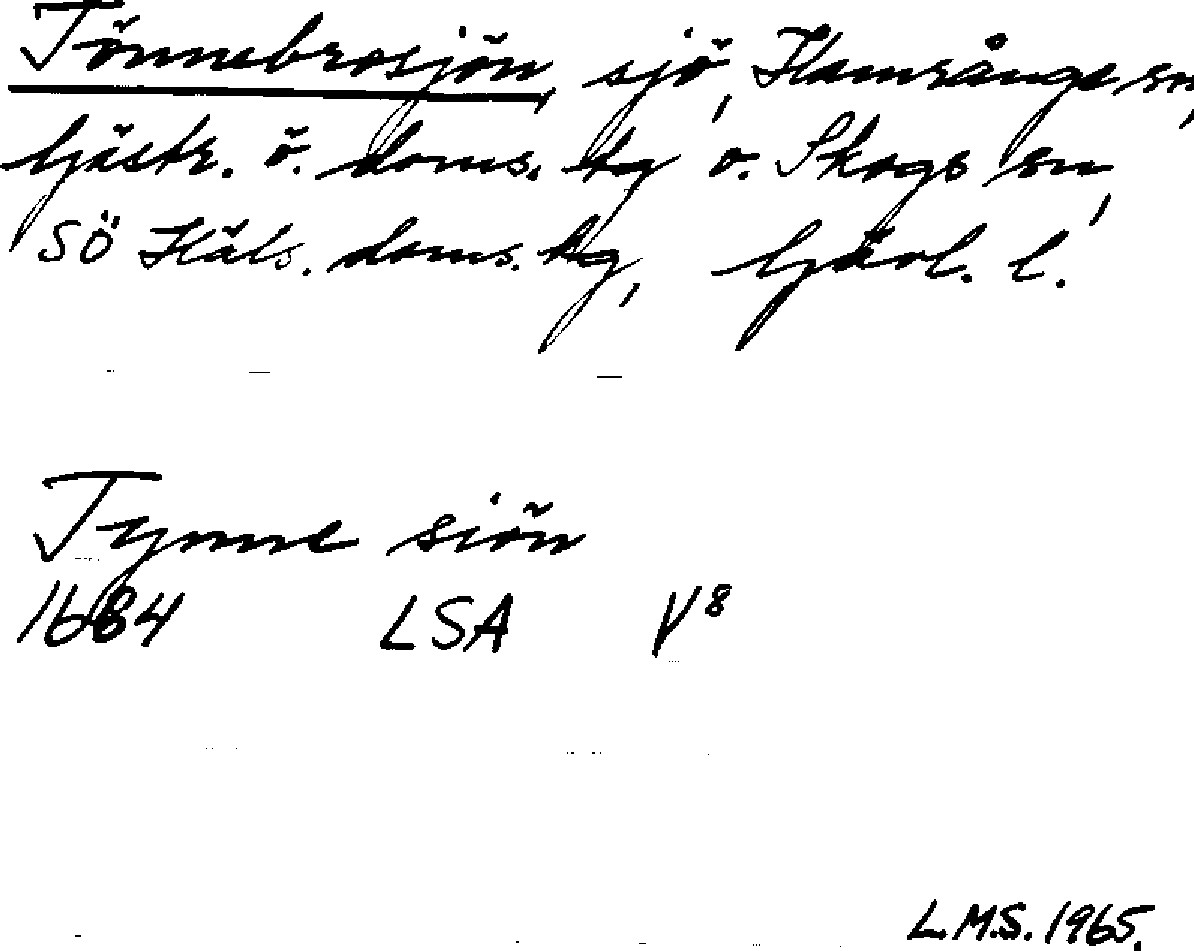 Tönnebrosjön, sjö, Hamrånge sn,
Gästr. ö. doms. tg o. Skogs sn,
SÖ Häls. doms. tg, Gävl. l.
Tynne siön
1684 LSA V8
L.M.S. 1965.